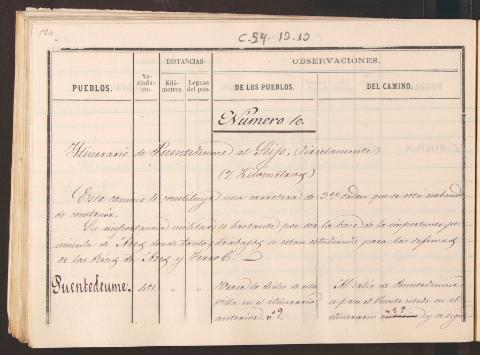 124
C.54-10-10
PUEBLOS.
Vecindario.
DISTANCIAS
Kilómetros.
Leguas del país.
OBSERVACIONES.
DE LOS PUEBLOS.
DEL CAMINO.
Número 10.
Itinerario de Puentedeume al Seijo, (directamente)
(7 Kilómetros)
Este camino lo constituye una carretera de 3er orden que se está acabando
de construir.
Su importancia militar es bastante por ser la base de la importante pe-
nínsula de Ares donde tantos trabajos se están estudiando para las defensas
de las Rías de Ares y Ferrol.
Puentedeume.
Véase lo dicho de esta
villa en el itinerario
anterior nº 9.
Al salir de Puentedeume
se pasa el Puente citado en el
itinerario nº 9 y se sigue